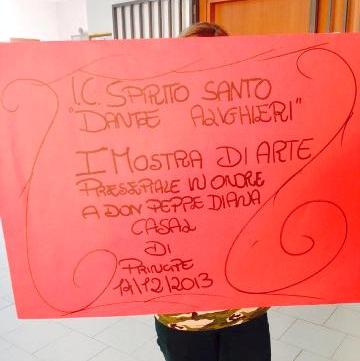 I.C. SPIRITO SANTO
"DANTE ALIGHIERI"
I MOSTRA DI ARTE
PRESEPIALE IN ONORE
A DON PEPPE DIANA
CASAL
DI
PRINCIPE
17/12/2013